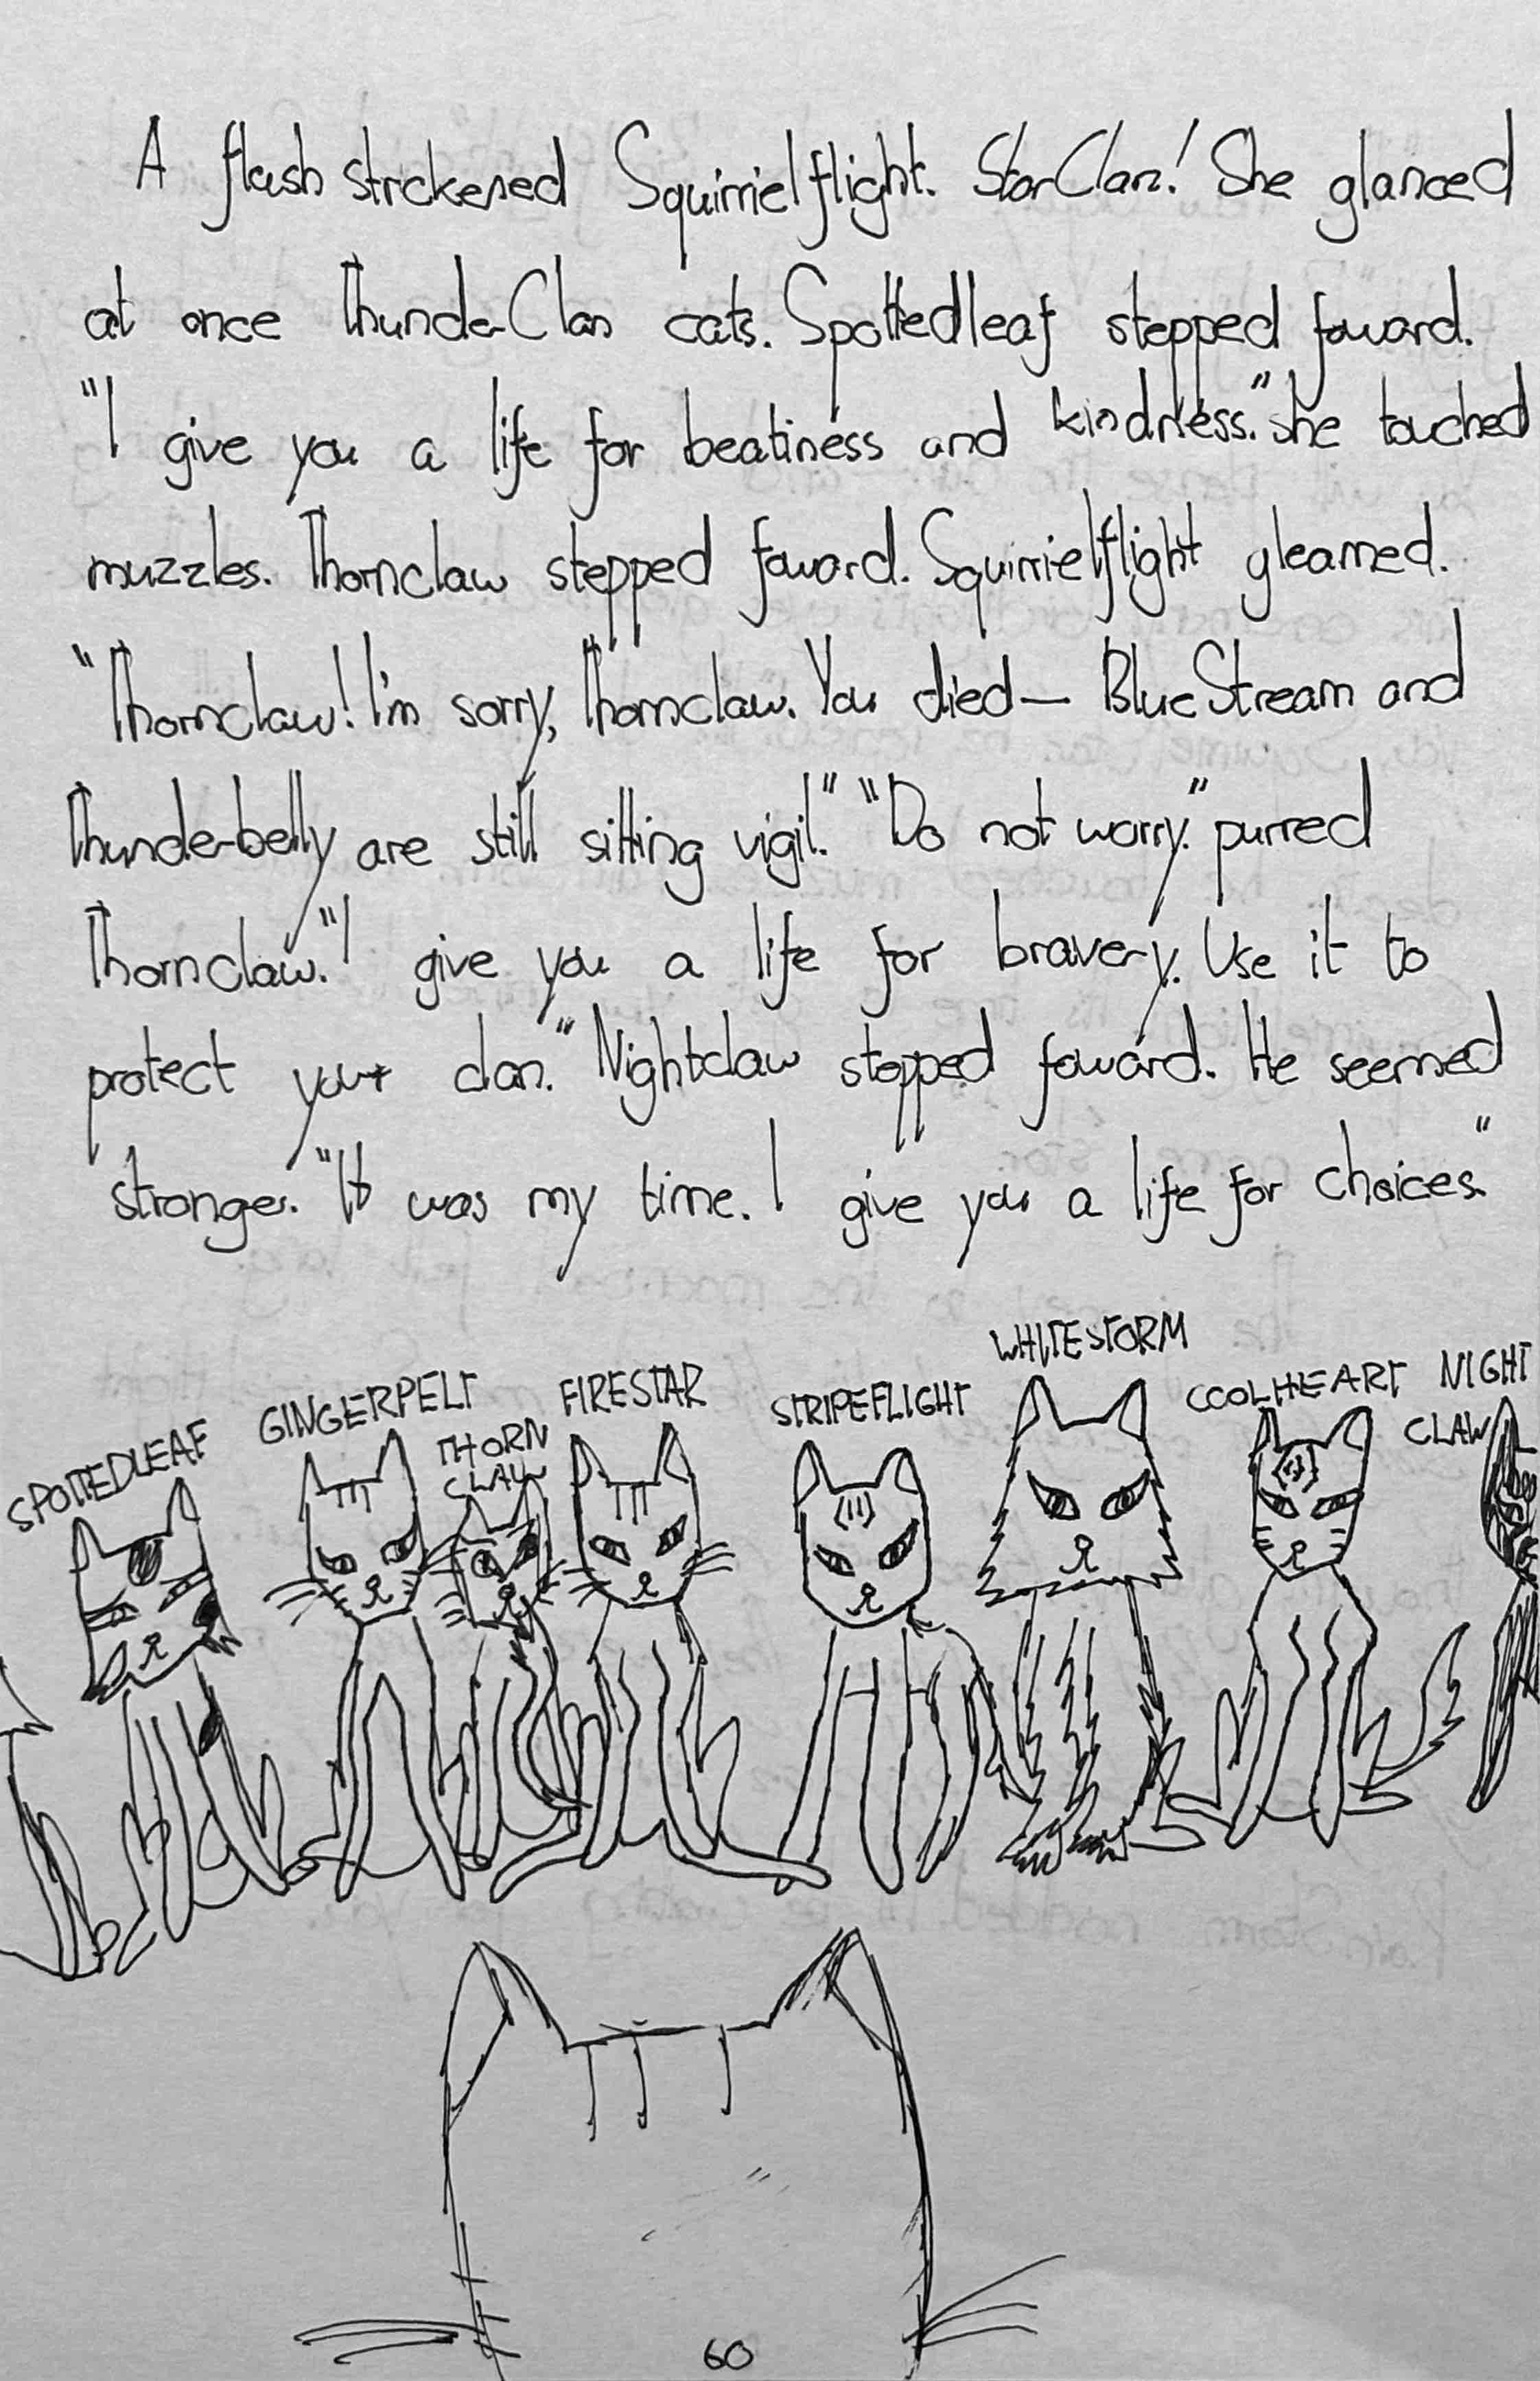 A flash strckened Squirrielflight. StarClan! She glanced
at once ThunderClan cats. Spottedleaf stepped foward.
"I give you a life for beatiness and kindness." she touched
muzzles. Thornclaw stepped foward. Squirrielflight gleamed.
"Thornclaw! I'm sorry, Thornclaw. You died— BlueStream and
Thunder-belly are still sitting vigil." "Do not worry." purred
Thornclaw. "I give you a life for bravery. Use it to
protect your clan." Nightclaw stepped foward. He seemed
stronger. "It was my time. I give you a life for choices."
WHITESTORM
SPOTTEDLEAF GINGERPELT THORN CLAW FIRESTAR STRIPEFLIGHT CCOLHEART NIGHT CLAW
60